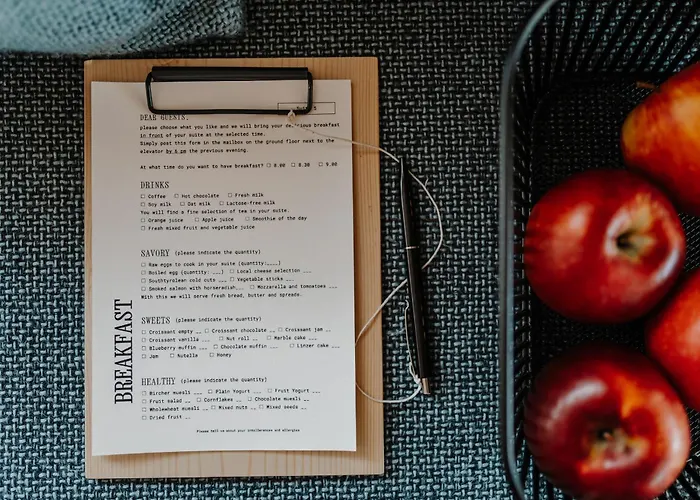 DEAR GUESTS,
please choose what you like and we will bring your delicious breakfast
in front of your suite at the selected time.
Simply post this form in the mailbox on the ground floor next to the
elevator by 6 pm the previous evening.
At what time do you want to have breakfast? ☐ 8.00 ☐ 8.30 ☐ 9.00
DRINKS
☐ Coffee ☐ Hot chocolate ☐ Fresh milk
☐ Soy milk ☐ Oat milk ☐ Lactose-free milk
You will find a fine selection of tea in your suite.
☐ Orange juice ☐ Apple juice ☐ Smoothie of the day
☐ Fresh mixed fruit and vegetable juice
SAVORY (please indicate the quantity)
☐ Raw eggs to cook in your suite (quantity:___)
☐ Boiled egg (quantity: ___) ☐ Local cheese selection ___
☐ Southtyrolean cold cuts ___ ☐ Vegetable sticks ___
☐ Smoked salmon with horseradish___ ☐ Mozzarella and tomatoes ___
With this we will serve fresh bread, butter and spreads.
SWEETS (please indicate the quantity)
☐ Croissant empty __ ☐ Croissant chocolate __ ☐ Croissant jam __
☐ Croissant vanilla ___ ☐ Nut roll __ ☐ Marble cake ___
☐ Blueberry muffin ___ ☐ Chocolate muffin ___ ☐ Linzer cake ___
☐ Jam ☐ Nutella ☐ Honey
BREAKFAST
HEALTHY (please indicate the quantity)
☐ Bircher muesli __ ☐ Plain Yogurt ___ ☐ Fruit Yogurt ___
☐ Fruit salad __ ☐ Cornflakes __ ☐ Chocolate muesli __
☐ Wholewheat muesli __ ☐ Mixed nuts __ ☐ Mixed seeds __
☐ Dried fruit __
Please tell us about your intolerances and allergies